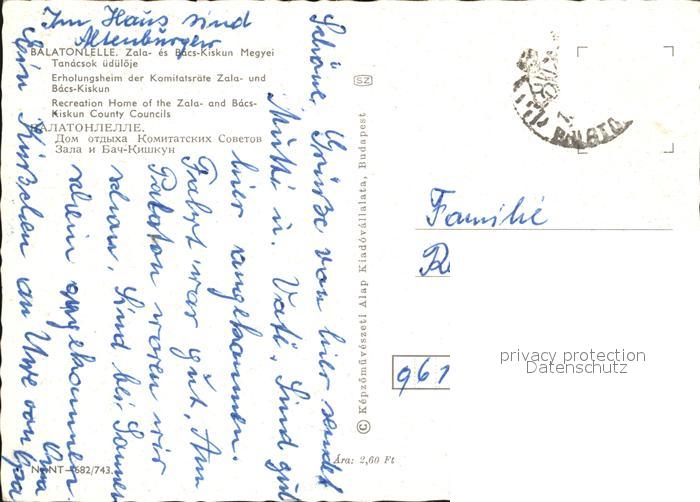 Im Haus sind
Altenburger
BALATONLELLE. Zala- és Bács-Kiskun Megyei
Tanácsok üdülője
Erholungsheim der Komitatsräte Zala- und
Bács-Kiskun
Recreation Home of the Zala- and Bács-
Kiskun County Councils
БАЛАТОНЛЕЛЛЕ.
Дом отдыха Комитатских Советов
Зала и Бач-Кишкун
Schöne Grüße von hier sendet
Mutti u. Vati. Sind gut
hier angekommen.
Fahrt war gut. Am
Balaton waren wir
schon. Sind bei Sonnen
schein angekommen
Ein Küßchen an Uwe von Opa
Oma
SZ
© Képzőművészeti Alap Kiadóvállalata, Budapest
Ára: 2,60 Ft
BALATO
Familie
961
privacy protection
Datenschutz